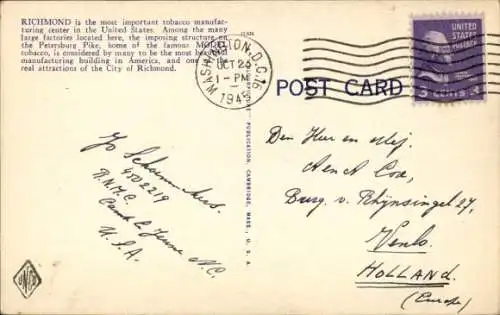 RICHMOND is the most important tobacco manufac-
turing center in the United States. Among the many
large factories located here, the imposing structure on
the Petersburg Pike, home of the famous MODEL
tobacco, is considered by many to be the most beautiful
manufacturing building in America, and one
real attractions of the City of Richmond.
WASHINGTON, D.C. 16
OCT 24
1 - PM
1945
UNITED
STATES
POSTAGE
3 CENTS 3
POST CARD
PUBLICATION, CAMBRIDGE, MASS., U. S. A.
4502219
R.N.M.C.
Camp Le Jeune N.C.
U.S.A.
Den Heer en Mej.
A en A Cox,
Burg. v. Rhijnsingel 27,
Venlo.
HOLLAND
(Europe)